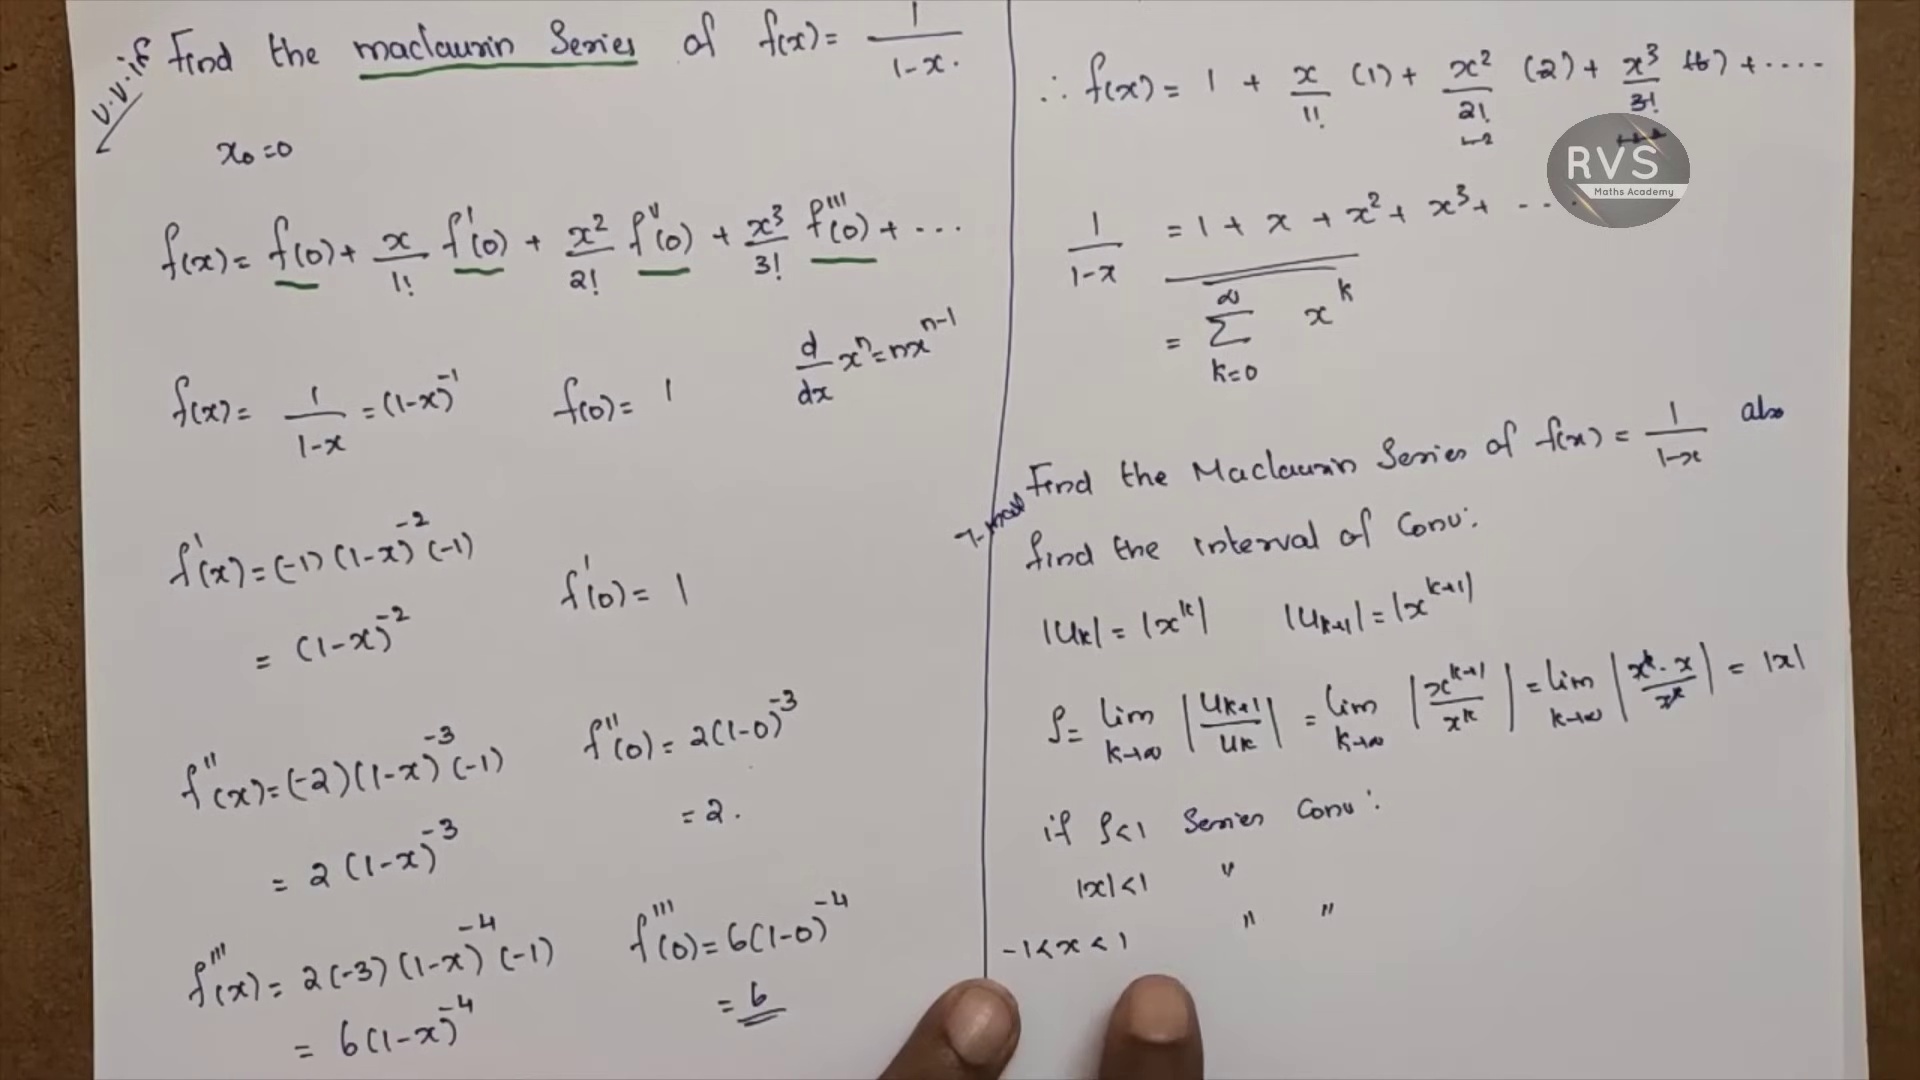 v.v.if Find the maclaurin Series of f(x) = 1/1-x.
x₀=0
f(x) = f(0) + x/1! f'(0) + x²/2! f''(0) + x³/3! f'''(0) + ...
d/dx xⁿ = nxⁿ⁻¹
f(x) = 1/1-x = (1-x)⁻¹ f(0) = 1
f'(x) = (-1)(1-x)⁻²(-1) f'(0) = 1
= (1-x)⁻²
f''(x) = (-2)(1-x)⁻³(-1) f''(0) = 2(1-0)⁻³
= 2(1-x)⁻³ = 2.
f'''(x) = 2(-3)(1-x)⁻⁴(-1) f'''(0) = 6(1-0)⁻⁴
= 6(1-x)⁻⁴ = 6
∴ f(x) = 1 + x/1! (1) + x²/2! (2) + x³/3! (6) + ....
RVS
Maths Academy
1/1-x = 1 + x + x² + x³ + ...
= ∞ Σ k=0 xᵏ
Find the Maclaurin Series of f(x) = 1/1-x also
find the interval of Conv:
|uₖ| = |xᵏ| |uₖ₊₁| = |xᵏ⁺¹|
ρ = lim k→∞ |uₖ₊₁/uₖ| = lim k→∞ |xᵏ⁺¹/xᵏ| = lim k→∞ |xᵏ·x/xᵏ| = |x|
if ρ<1 Series Conv:
|x|<1 "
-1<x<1 " "